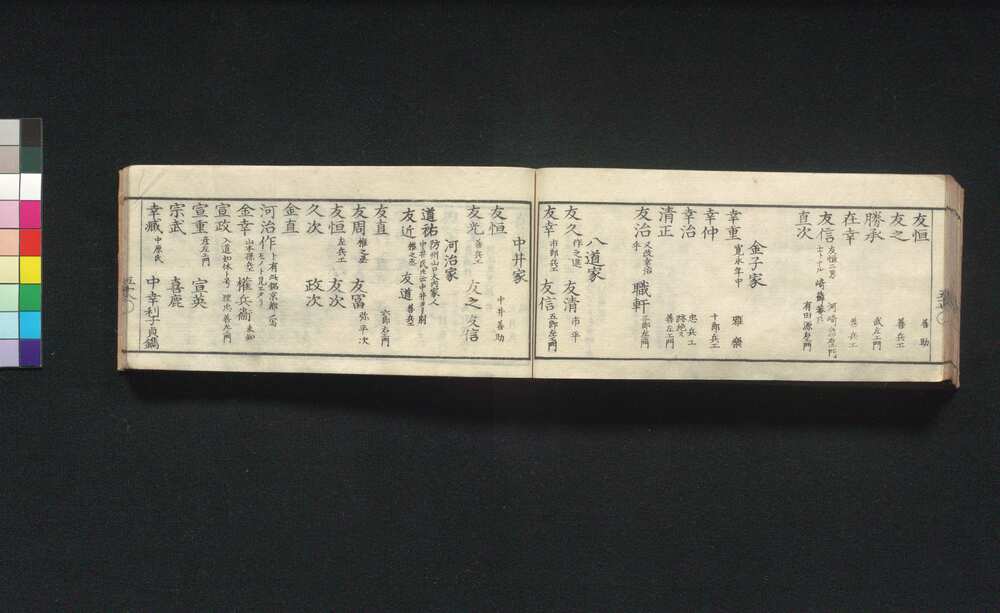 友恒 善助
友之 善兵エ
勝承 武左エ門
在幸 善兵エ
友信 友恒二男
直次 有田源右エ門
金子家
幸重 寛永年中 雅樂
幸仲 十郎兵エ
幸治 忠兵エ
清正 善左エ門
友治 又改幸治 職軒 三郎左エ門
八道家
友久 作之進 友清 市平
友幸 市郎兵エ 友信 五郎左エ門
中井家
友恒 中井善助
友光 善兵エ 友之 友信
河治家
道祐 防州山口大内家人
友近 権之丞 友道 善兵エ
友直 六郎右エ門
友周 権之丞 友冨 弥平次
友恒 左兵エ 友次
久次 政次
金直
河治作
金幸 山本孫兵エ 権兵衛
宣政 入道如休ト号 理忠 善左エ門
宣重 彦左エ門 宣英
宗武 喜鹿
幸臧 中原氏 中幸利子貞鐫